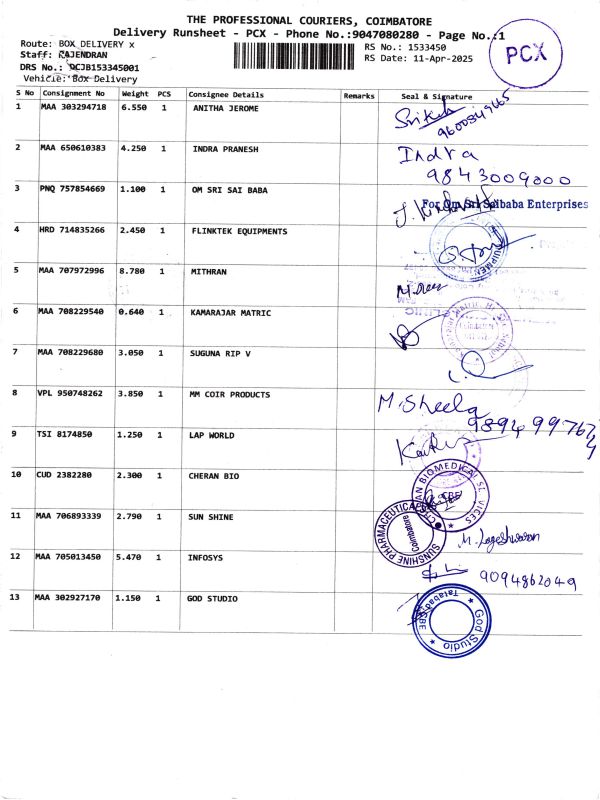 THE PROFESSIONAL COURIERS, COIMBATORE
Delivery Runsheet - PCX - Phone No.:9047080280 - Page No.:1
Route: BOX DELIVERY x
RS No.: 1533450
PCX
Staff: RAJENDRAN
RS Date: 11-Apr-2025
DRS No.: DCJB153345001
Vehicle: Box Delivery
S No Consignment No Weight PCS Consignee Details Remarks Seal & Signature
1 MAA 303294718 6.550 1 ANITHA JEROME
2 MAA 650610383 4.250 1 INDRA PRANESH Indra
9843009000
3 PNQ 757854669 1.100 1 OM SRI SAI BABA For Om Sri Saibaba Enterprises
4 HRD 714835266 2.450 1 FLINKTEK EQUIPMENTS
5 MAA 707972996 8.780 1 MITHRAN
6 MAA 708229540 0.640 1 KAMARAJAR MATRIC
7 MAA 708229680 3.050 1 SUGUNA RIP V
8 VPL 950748262 3.850 1 MM COIR PRODUCTS M. Sheela
9 TSI 8174850 1.250 1 LAP WORLD
10 CUD 2382280 2.300 1 CHERAN BIO
11 MAA 706893339 2.790 1 SUN SHINE SUNSHINE PHARMACEUTICAL Coimbatore
M. Logeshwaran
12 MAA 705013450 5.470 1 INFOSYS 9094862049
13 MAA 302927170 1.150 1 GOD STUDIO God Studio Tatabad